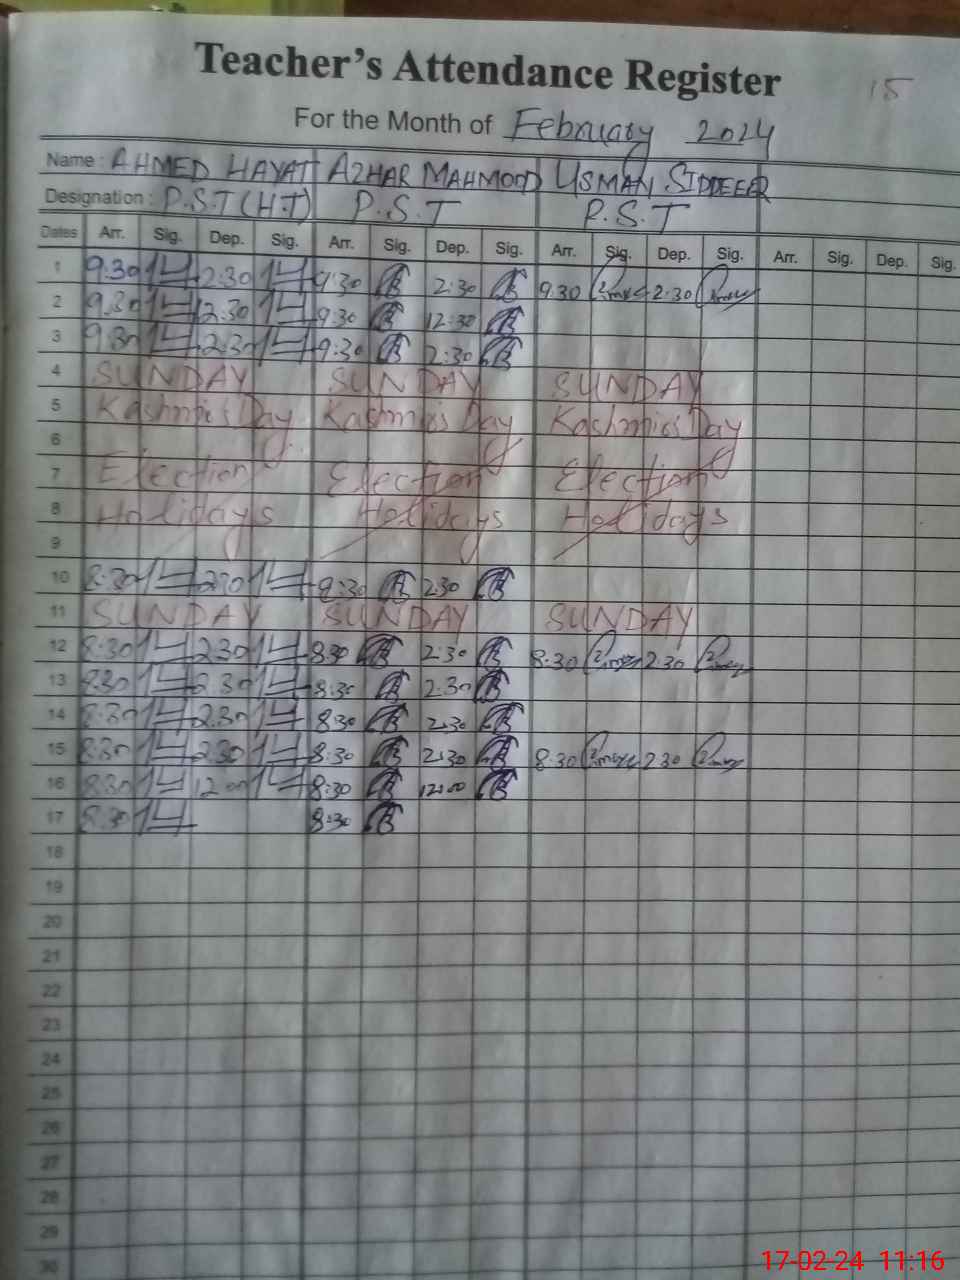 Teacher's Attendance Register
15
For the Month of February 2024
Name : AHMED HAYAT AZHAR MAHMOOD USMAN SIDDEEQR
Designation : P.S.T (H.T) P.S.T P.S.T
Dates Arr. Sig. Dep. Sig. Arr. Sig. Dep. Sig. Arr. Sig. Dep. Sig. Arr. Sig. Dep. Sig.
1 9:30 2:30 9:30 2:30 9:30 2:30
2 9:30 12:30 9:30 12:30
3 9:30 2:30 9:30 2:30
4 SUNDAY SUNDAY SUNDAY
5 Kashmir's Day Kashmir's Day Kashmir's Day
6
7 Election Election Election
8 Holidays Holidays Holidays
9
10 8:30 230 8:30 2:30
11 SUNDAY SUNDAY SUNDAY
12 8:30 230 830 2:30 8:30 2:30
13 8:30 2:30 8:30 2:30
14 8:30 2:30 8:30 2:30
15 8:30 2:30 8:30 2:30 8:30 230
16 8:30 12:00 8:30 12:00
17 8:30 8:30
18
19
20
21
22
23
24
25
26
27
28
29
30
17-02-24 11:16